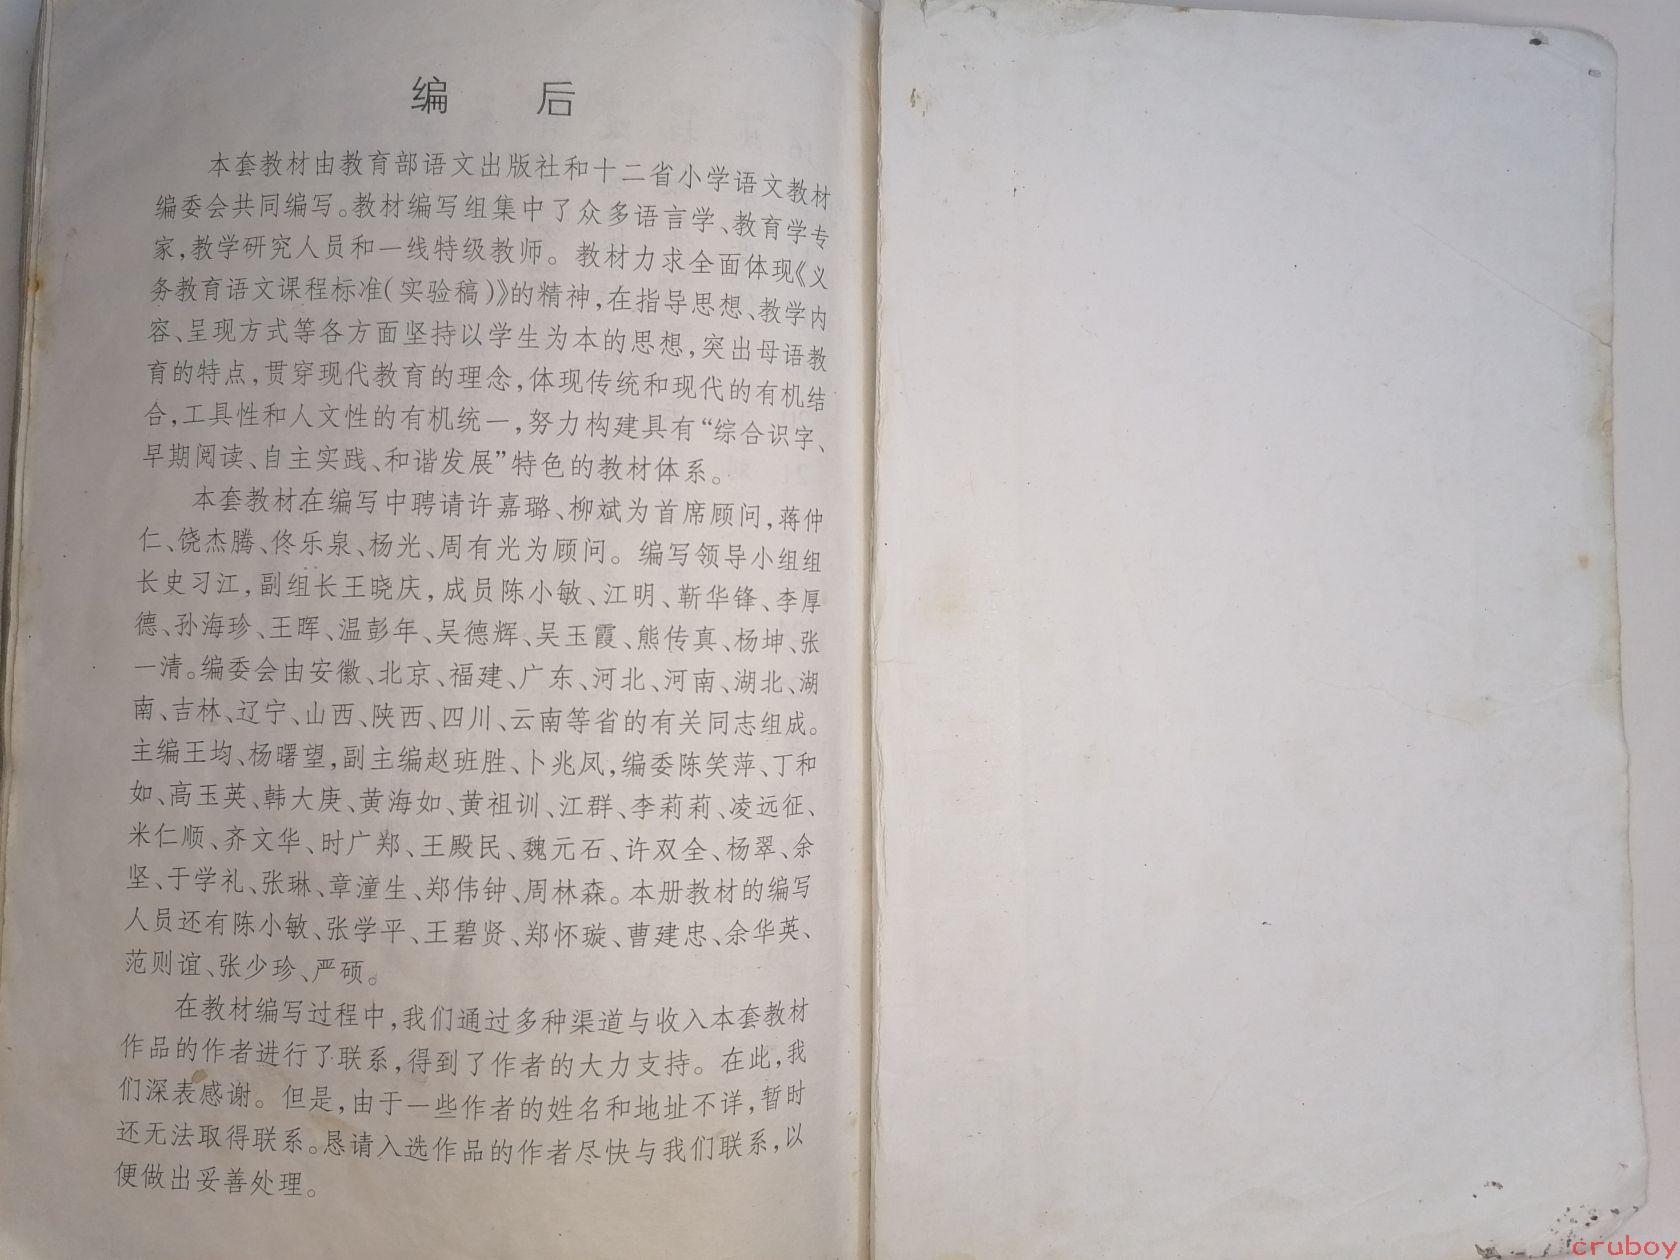 编 后
本套教材由教育部语文出版社和十二省小学语文教材
编委会共同编写。教材编写组集中了众多语言学、教育学专
家,教学研究人员和一线特级教师。教材力求全面体现《义
务教育语文课程标准(实验稿)》的精神,在指导思想、教学内
容、呈现方式等各方面坚持以学生为本的思想,突出母语教
育的特点,贯穿现代教育的理念,体现传统和现代的有机结
合,工具性和人文性的有机统一,努力构建具有“综合识字、
早期阅读、自主实践、和谐发展”特色的教材体系。
本套教材在编写中聘请许嘉璐、柳斌为首席顾问,蒋仲
仁、饶杰腾、佟乐泉、杨光、周有光为顾问。编写领导小组组
长史习江,副组长王晓庆,成员陈小敏、江明、靳华锋、李厚
德、孙海珍、王晖、温彭年、吴德辉、吴玉霞、熊传真、杨坤、张
一清。编委会由安徽、北京、福建、广东、河北、河南、湖北、湖
南、吉林、辽宁、山西、陕西、四川、云南等省的有关同志组成。
主编王均、杨曙望,副主编赵班胜、卜兆凤,编委陈笑萍、丁和
如、高玉英、韩大庚、黄海如、黄祖训、江群、李莉莉、凌远征、
米仁顺、齐文华、时广郑、王殿民、魏元石、许双全、杨翠、余
坚、于学礼、张琳、章潼生、郑伟钟、周林森。本册教材的编写
人员还有陈小敏、张学平、王碧贤、郑怀璇、曹建忠、余华英、
范则谊、张少珍、严硕。
在教材编写过程中,我们通过多种渠道与收入本套教材
作品的作者进行了联系,得到了作者的大力支持。在此,我
们深表感谢。但是,由于一些作者的姓名和地址不详,暂时
还无法取得联系。恳请入选作品的作者尽快与我们联系,以
便做出妥善处理。
cruboy